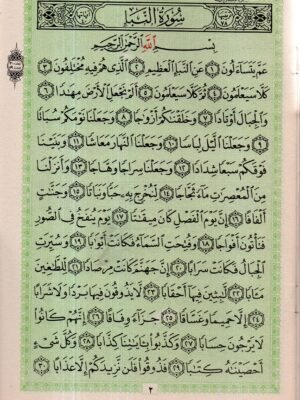 سُورَةُ النَّبَإِ
بِسْمِ اللَّهِ الرَّحْمَٰنِ الرَّحِيمِ
عَمَّ يَتَسَاءَلُونَ ١ عَنِ النَّبَإِ الْعَظِيمِ ٢ الَّذِي هُمْ فِيهِ مُخْتَلِفُونَ ٣
كَلَّا سَيَعْلَمُونَ ٤ ثُمَّ كَلَّا سَيَعْلَمُونَ ٥ أَلَمْ نَجْعَلِ الْأَرْضَ مِهَادًا ٦
وَالْجِبَالَ أَوْتَادًا ٧ وَخَلَقْنَاكُمْ أَزْوَاجًا ٨ وَجَعَلْنَا نَوْمَكُمْ سُبَاتًا
٩ وَجَعَلْنَا اللَّيْلَ لِبَاسًا ١٠ وَجَعَلْنَا النَّهَارَ مَعَاشًا ١١ وَبَنَيْنَا
فَوْقَكُمْ سَبْعًا شِدَادًا ١٢ وَجَعَلْنَا سِرَاجًا وَهَّاجًا ١٣ وَأَنْزَلْنَا
مِنَ الْمُعْصِرَاتِ مَاءً ثَجَّاجًا ١٤ لِنُخْرِجَ بِهِ حَبًّا وَنَبَاتًا ١٥ وَجَنَّاتٍ
أَلْفَافًا ١٦ إِنَّ يَوْمَ الْفَصْلِ كَانَ مِيقَاتًا ١٧ يَوْمَ يُنْفَخُ فِي الصُّورِ
فَتَأْتُونَ أَفْوَاجًا ١٨ وَفُتِحَتِ السَّمَاءُ فَكَانَتْ أَبْوَابًا ١٩ وَسُيِّرَتِ
الْجِبَالُ فَكَانَتْ سَرَابًا ٢٠ إِنَّ جَهَنَّمَ كَانَتْ مِرْصَادًا ٢١ لِلطَّاغِينَ
مَآبًا ٢٢ لَابِثِينَ فِيهَا أَحْقَابًا ٢٣ لَا يَذُوقُونَ فِيهَا بَرْدًا وَلَا شَرَابًا
٢٤ إِلَّا حَمِيمًا وَغَسَّاقًا ٢٥ جَزَاءً وِفَاقًا ٢٦ إِنَّهُمْ كَانُوا
لَا يَرْجُونَ حِسَابًا ٢٧ وَكَذَّبُوا بِآيَاتِنَا كِذَّابًا ٢٨ وَكُلَّ شَيْءٍ
أَحْصَيْنَاهُ كِتَابًا ٢٩ فَذُوقُوا فَلَنْ نَزِيدَكُمْ إِلَّا عَذَابًا ٣٠
٢